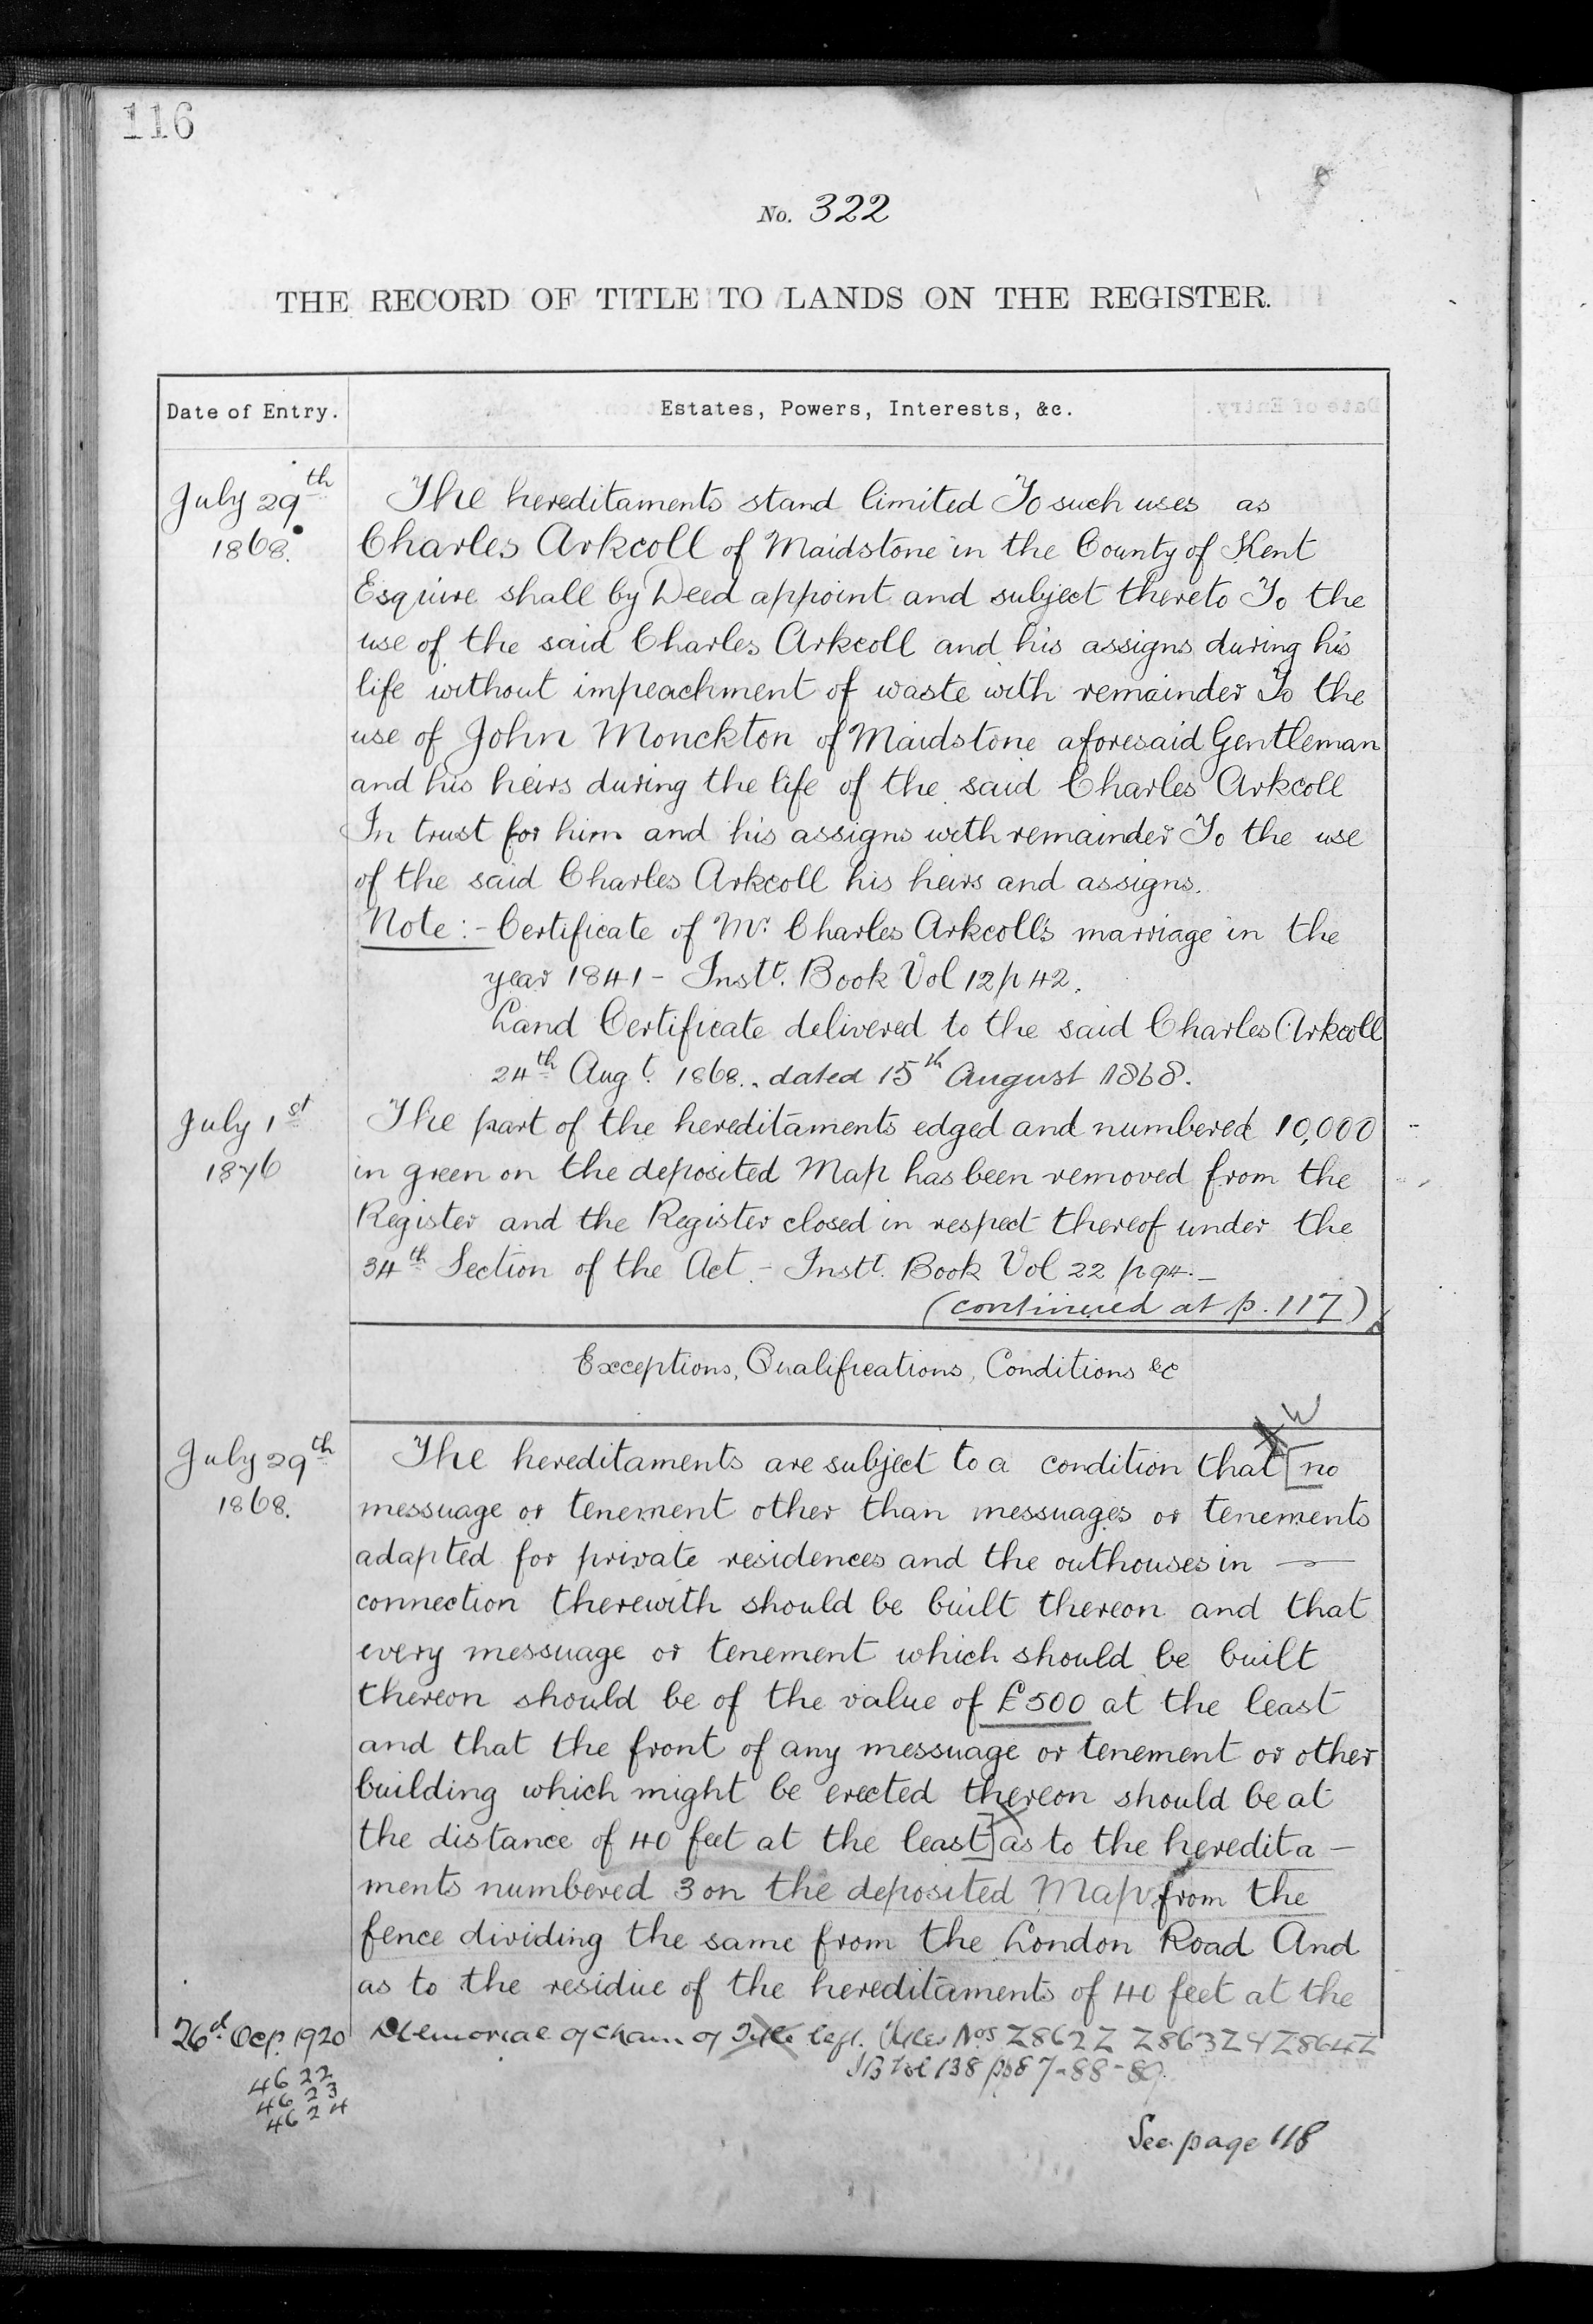 116
No. 322
THE RECORD OF TITLE TO LANDS ON THE REGISTER.
Date of Entry.
Estates, Powers, Interests, &c.
July 29th
1868.
The hereditaments stand limited To such uses as
Charles Arkcoll of Maidstone in the County of Kent
Esquire shall by Deed appoint and subject thereto To the
use of the said Charles Arkcoll and his assigns during his
life without impeachment of waste with remainder To the
use of John Monckton of Maidstone aforesaid Gentleman
and his heirs during the life of the said Charles Arkcoll
In trust for him and his assigns with remainder To the use
of the said Charles Arkcoll his heirs and assigns.
Note:- Certificate of Mr. Charles Arkcoll's marriage in the
year 1841 - Instt. Book Vol 12 p 42.
Land Certificate delivered to the said Charles Arkcoll
24th Augt. 1868., dated 15th August 1868.
July 1st
1876
The part of the hereditaments edged and numbered 10,000
in green on the deposited Map has been removed from the
Register and the Register closed in respect thereof under the
34th Section of the Act - Instt. Book Vol 22 p 94.-
(continued at p. 117)
Exceptions, Qualifications, Conditions &c
W
July 29th
1868.
The hereditaments are subject to a condition that [no
messuage or tenement other than messuages or tenements
adapted for private residences and the outhouses in —
connection therewith should be built thereon and that
every messuage or tenement which should be built
thereon should be of the value of £500 at the least
and that the front of any messuage or tenement or other
building which might be erected thereon should be at
the distance of 40 feet at the least] as to the heredita-
ments numbered 3 on the deposited Map from the
fence dividing the same from the London Road And
as to the residue of the hereditaments of 40 feet at the
26th 1920 Memorial of Title left. Nos Z862Z Z863Z & Z864Z
4622
4623
4624
IB Vol 138 pp 87-88-89.
See page 118